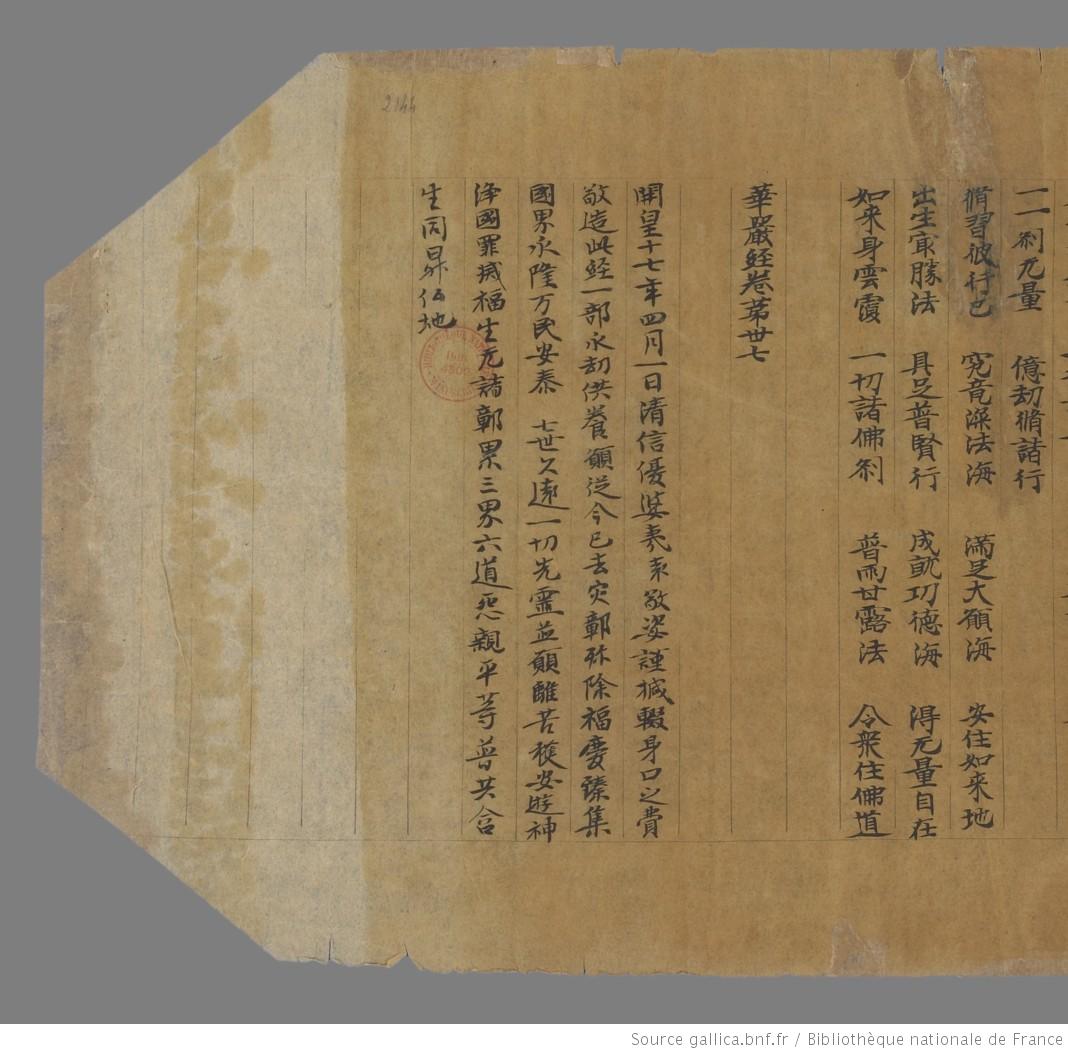 一一刹无量 億劫脩諸行
脩習彼行已 究竟深法海 滿足大願海 安住如来地
出生寂勝法 具足普賢行 成就功德海 得无量自在
如来身雲霞 一切諸佛刹 普雨甘露法 令衆住佛道
華嚴經卷苐卅七
開皇十七年四月一日清信優婆夷袁敬姿謹摵輟身口之費
敬造此經一部永劫供養願從今已去灾鄣殄除福慶臻集
國界永隆万民安泰 七世久遠一切先靈並願離苦獲安遊神
淨國罪滅福生无諸鄣累三界六道怨親平等普共含
生同昇仏地
2144
Source gallica.bnf.fr / Bibliothèque nationale de France